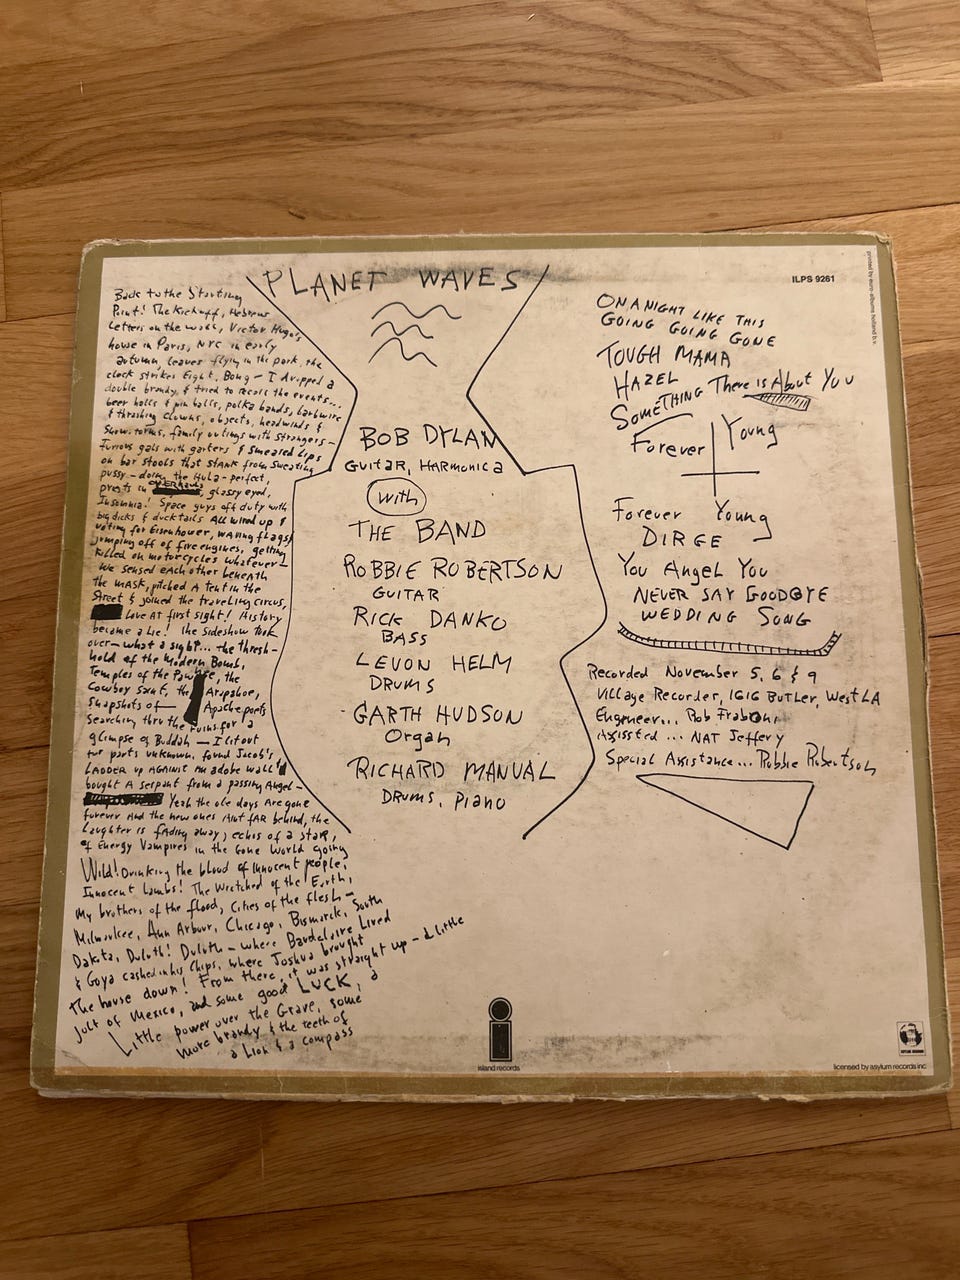 PLANET WAVES
Back to the Starting
Point! The Kickoff, Hebrew
Letters on the wall, Victor Hugo's
house in Paris, NYC in early
autumn, leaves flying in the park, the
clock strikes Eight, Bong — I dropped a
double brandy & tried to recall the events...
beer halls & pin balls, polka bands, barbwire
& thrashing clowns, objects, headwinds &
Snowstorms, family outings with strangers —
Furious gals with garters & smeared Lips
on bar stools that stank from sweating
pussy — doing the Hula — perfect,
priests in OVERhauls, glassy eyed,
Insomnia! Space guys off duty with
big dicks & ducktails All wired up &
voting for Eisenhower, waving flags &
jumping off of fire engines, getting
killed on motorcycles whatever —
We sensed each other beneath
the MASK, pitched A tent in the
Street & joined the traveling circus,
Love AT first sight! History
became a Lie! the sideshow took
over — what a sight... the thresh-
hold of the Modern Bomb,
Temples of the Pawnee, the
Cowboy Saint, the Arapahoe,
snapshots of — Apache poets
searching thru the ruins for a
glimpse of Buddah — I lit out
for parts unknown, found Jacob's
LADDER up AGAINST an adobe wall &
bought A serpant from a passing Angel —
Yeah the ole days Are gone
forever And the new ones Aint fAR behind, the
Laughter is fAding away, echos of a staR,
of Energy Vampires in the Gone World going
Wild! Drinking the blood of innocent people,
Innocent Lambs! The Wretched of the Earth,
My brothers of the flood, Cities of the flesh —
Milwaukee, Ann Arbour, Chicago, Bismarck, South
Dakota, Duluth! Duluth — where Baudelaire Lived
& Goya cashed in his Chips, where Joshua brought
The house down! From there, it was straight up — a little
jolt of Mexico, and some good LUCK, a
Little power over the Grave, some
more brandy & the teeth of
a Lion & a compass
BOB DYLAN
GUITAR, HARMONICA
with
THE BAND
ROBBIE ROBERTSON
GUITAR
RICK DANKO
BASS
LEVON HELM
DRUMS
GARTH HUDSON
Organ
RICHARD MANUAL
DRUMS, Piano
ILPS 9261
ON A NIGHT LIKE THIS
GOING GOING GONE
TOUGH MAMA
HAZEL
SOMETHING There is About You
Forever Young
Forever Young
DIRGE
You Angel You
NEVER SAY GOODBYE
WEDDING SONG
Recorded November 5, 6 & 9
Village Recorder, 1616 BUTLER, West LA
Engineer... Rob Fraboni
Assissted ... NAT Jeffery
Special Assistance... Robbie Robertson
island records
licensed by asylum records inc
ASYLUM RECORDS
printed by euro-albums holland b.v.